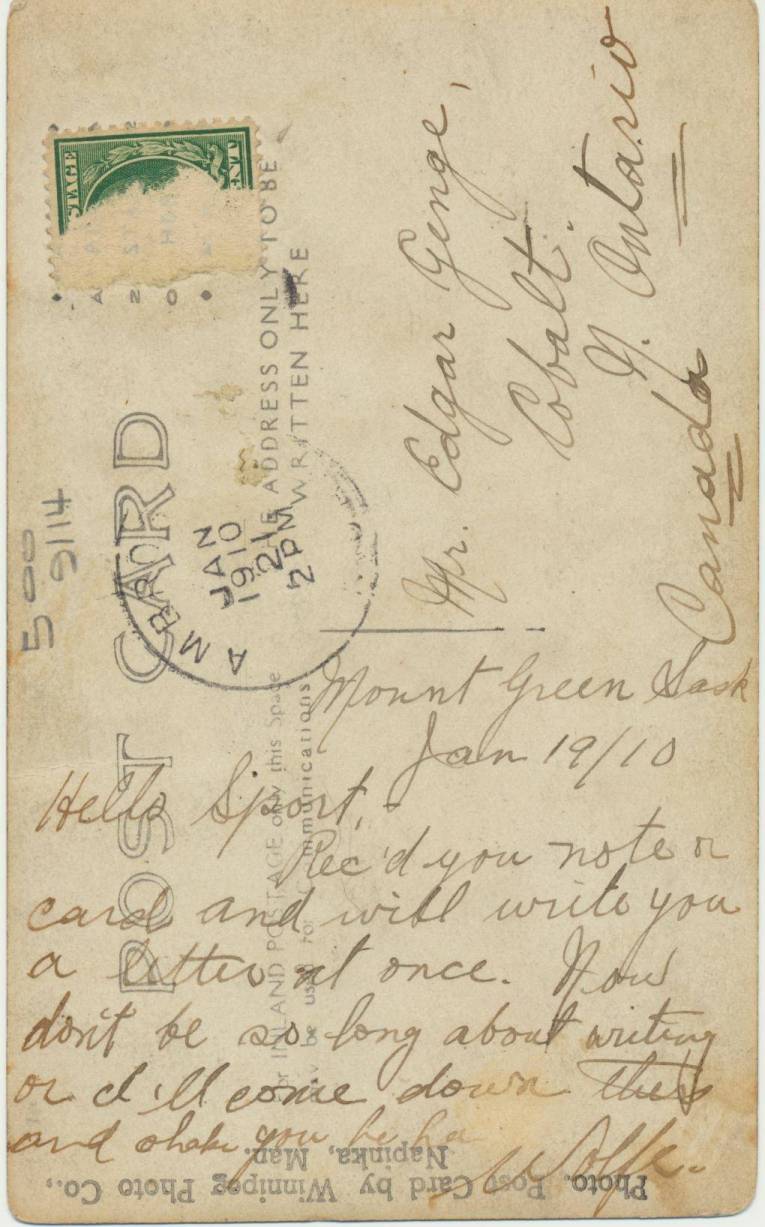 POST CARD
THE ADDRESS ONLY TO BE
WRITTEN HERE
For INLAND POSTAGE only this Space
may be used for Communications
AMBRO
JAN
21
1910
2 PM
500
9114
Mr. Edgar Genge,
Cobalt.
N. Ontario
Canada
Mount Green Sask
Jan 19/10
Hello Sport,-
Rec'd you note r
card and will write you
a letter at once. Now
don't be so long about writing
or I'll come down there
and shake you he ha
Wolfe.
Photo. Post Card by Winnipeg Photo Co.,
Napinka, Man.